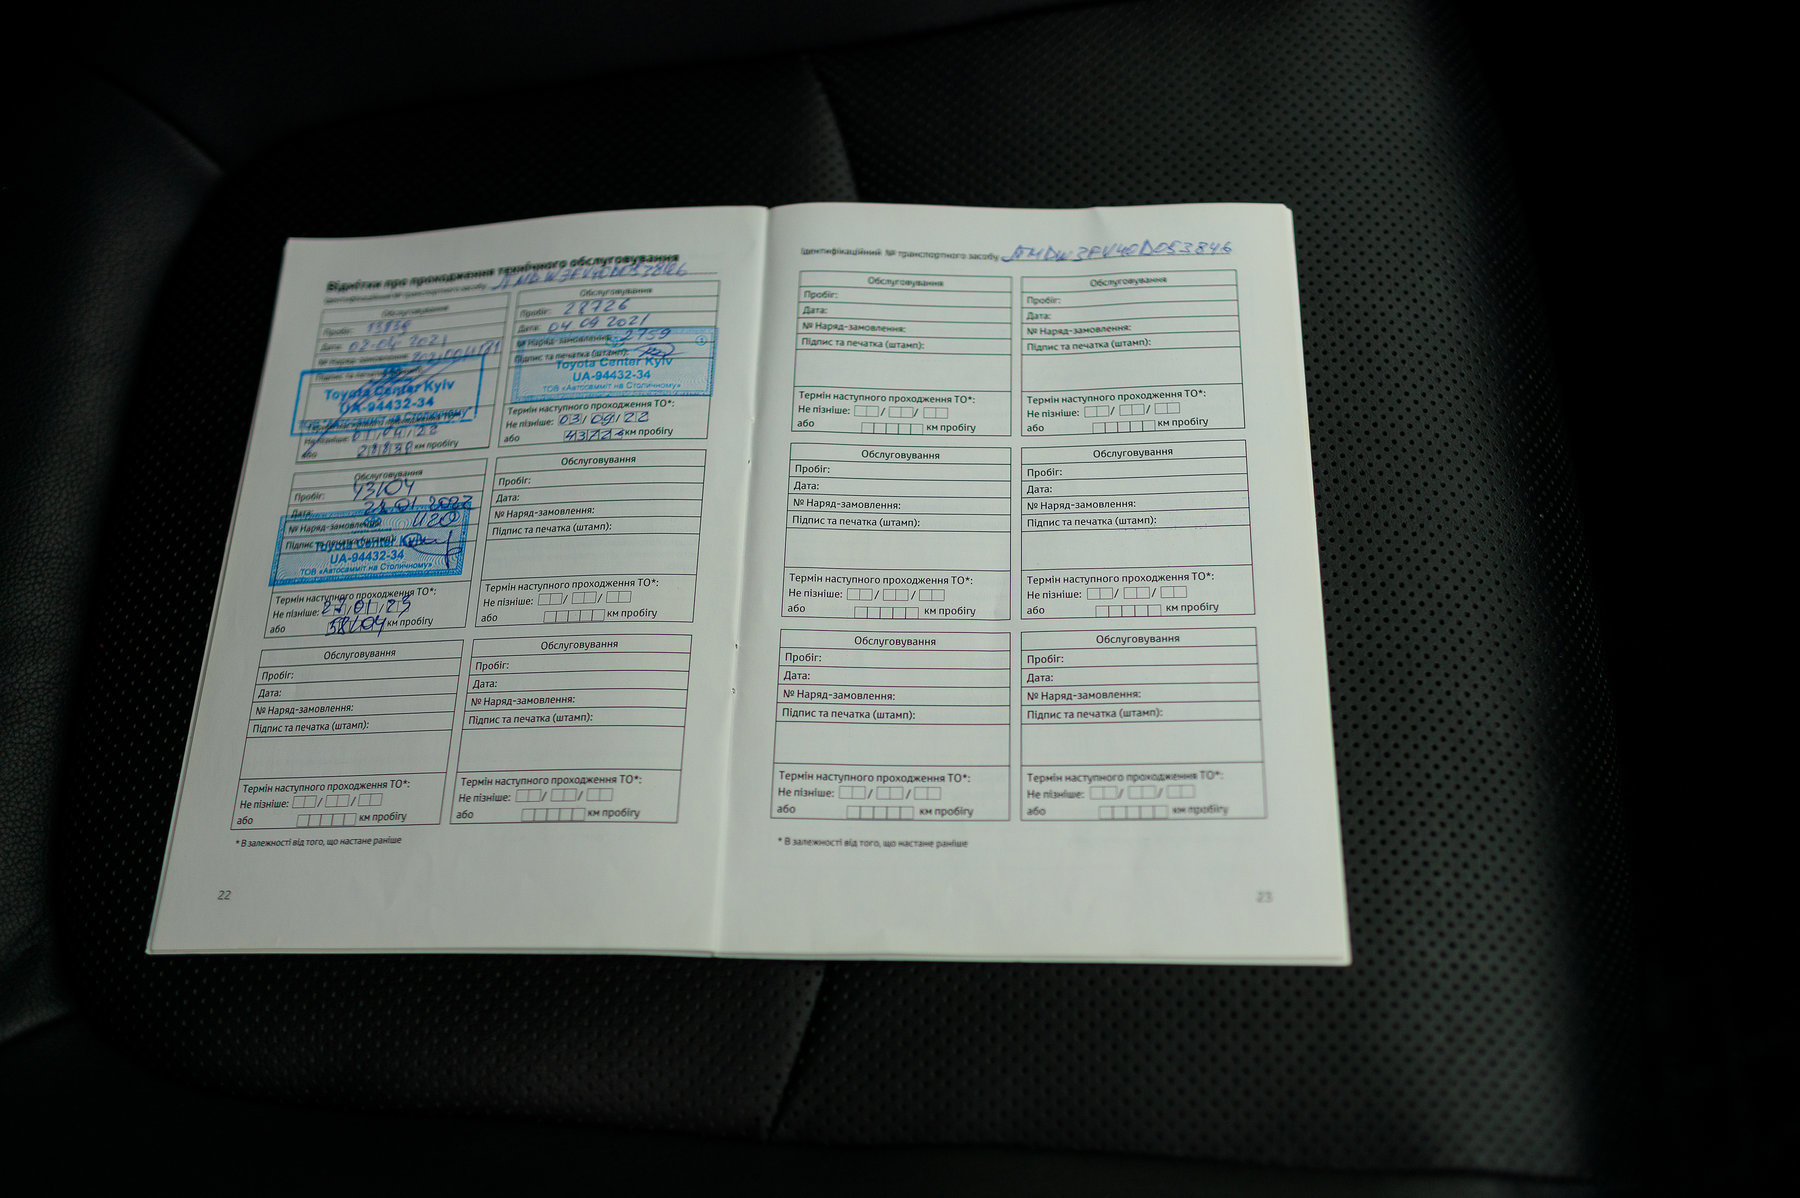 Відмітки про проходження технічного обслуговування
Ідентифікаційний № транспортного засобу
Обслуговування
Пробіг: 13838
Дата: 02.04 2021
№ Наряд-замовлення:
Підпис та печатка (штамп):
Toyota Center Kyiv
UA-94432-34
ТОВ «Автосамміт на Столичному»
Термін наступного проходження ТО*:
Не пізніше: 01/04/22
або 28838 км пробігу
Обслуговування
Пробіг: 28726
Дата: 04 09 2021
№ Наряд-замовлення: 2759
Підпис та печатка (штамп):
Toyota Center Kyiv
UA-94432-34
ТОВ «Автосамміт на Столичному»
Термін наступного проходження ТО*:
Не пізніше: 03/09/22
або км пробігу
Обслуговування
Пробіг: 43104
Дата: 01 2022
№ Наряд-замовлення: 420
Підпис та печатка (штамп):
Toyota Center Kyiv
UA-94432-34
ТОВ «Автосамміт на Столичному»
Термін наступного проходження ТО*:
Не пізніше: /01/23
або 58104 км пробігу
Обслуговування
Пробіг:
Дата:
№ Наряд-замовлення:
Підпис та печатка (штамп):
Термін наступного проходження ТО*:
Не пізніше: / /
або км пробігу
Обслуговування
Пробіг:
Дата:
№ Наряд-замовлення:
Підпис та печатка (штамп):
Термін наступного проходження ТО*:
Не пізніше: / /
або км пробігу
Обслуговування
Пробіг:
Дата:
№ Наряд-замовлення:
Підпис та печатка (штамп):
Термін наступного проходження ТО*:
Не пізніше: / /
або км пробігу
* В залежності від того, що настане раніше
22
Ідентифікаційний № транспортного засобу
Обслуговування
Пробіг:
Дата:
№ Наряд-замовлення:
Підпис та печатка (штамп):
Термін наступного проходження ТО*:
Не пізніше: / /
або км пробігу
Обслуговування
Пробіг:
Дата:
№ Наряд-замовлення:
Підпис та печатка (штамп):
Термін наступного проходження ТО*:
Не пізніше: / /
або км пробігу
Обслуговування
Пробіг:
Дата:
№ Наряд-замовлення:
Підпис та печатка (штамп):
Термін наступного проходження ТО*:
Не пізніше: / /
або км пробігу
Обслуговування
Пробіг:
Дата:
№ Наряд-замовлення:
Підпис та печатка (штамп):
Термін наступного проходження ТО*:
Не пізніше: / /
або км пробігу
Обслуговування
Пробіг:
Дата:
№ Наряд-замовлення:
Підпис та печатка (штамп):
Термін наступного проходження ТО*:
Не пізніше: / /
або км пробігу
Обслуговування
Пробіг:
Дата:
№ Наряд-замовлення:
Підпис та печатка (штамп):
Термін наступного проходження ТО*:
Не пізніше: / /
або км пробігу
* В залежності від того, що настане раніше
23